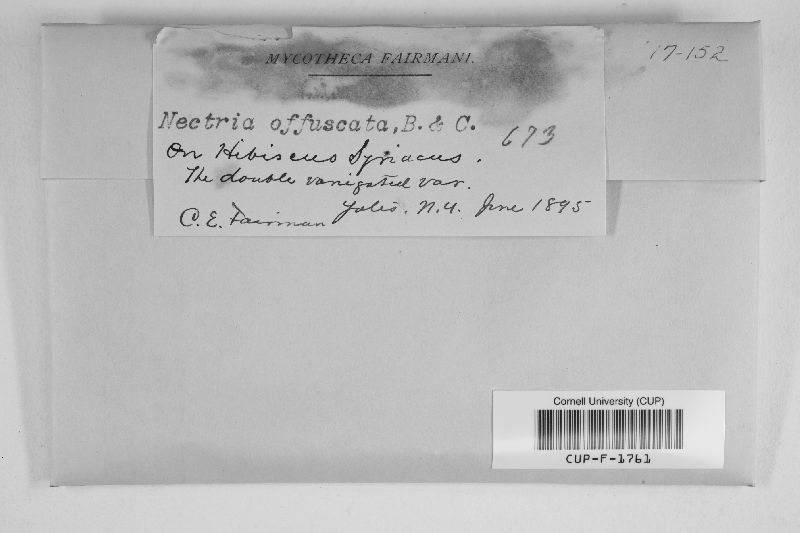 MYCOTHECA FAIRMANI.
17-152
Nectria offuscata, B. & C.
673
On Hibiscus Syriacus.
The double varigated var.
Yales. N.Y. June 1895
C. E. Fairman
Cornell University (CUP)
CUP-F-1761